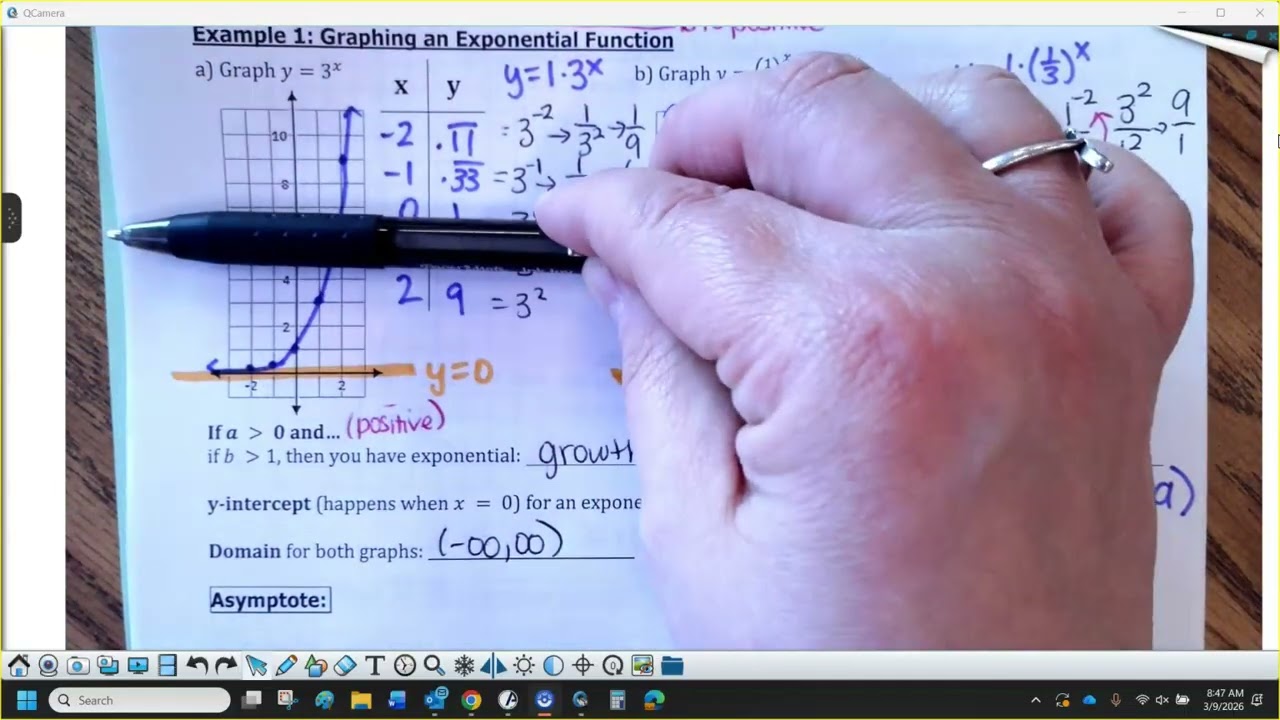 QCamera
Example 1: Graphing an Exponential Function
a) Graph y = 3ˣ
x y
y=1·3ˣ
b) Graph y
1·(1/3)ˣ
-2 .11 = 3⁻² → 1/3² → 1/9
-1 .33 = 3⁻¹ → 1
3² → 9/1
0 1
2 9 = 3²
10
8
4
2
-2 2
y=0
If a > 0 and... (positive)
if b > 1, then you have exponential: growth
y-intercept (happens when x = 0) for an
a)
Domain for both graphs: (-∞,∞)
Asymptote:
Search
8:47 AM
3/9/2026